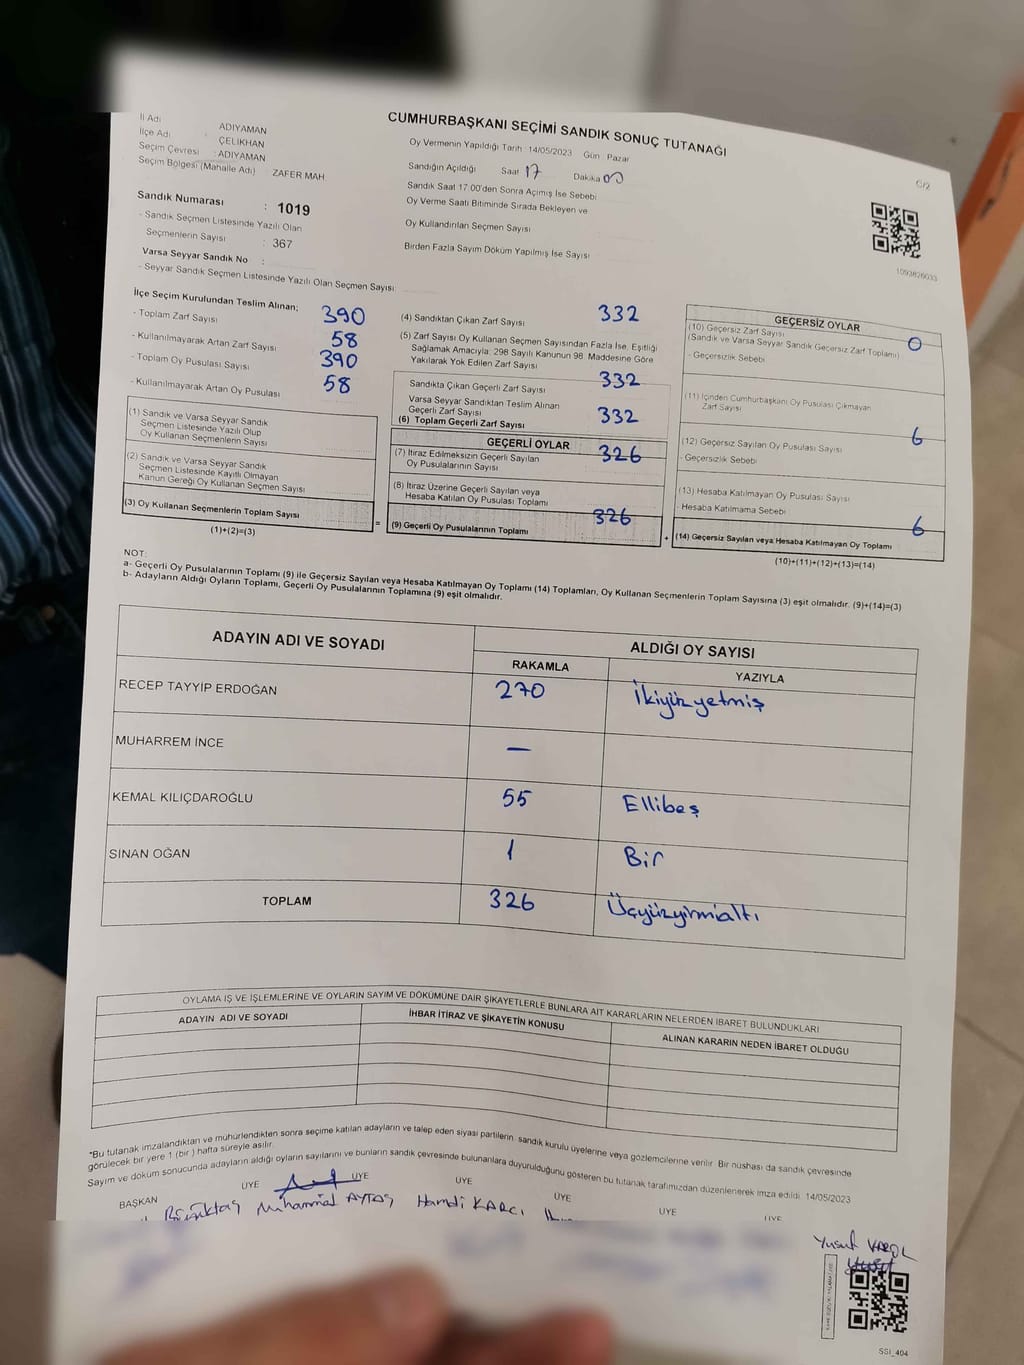 CUMHURBAŞKANI SEÇİMİ SANDIK SONUÇ TUTANAĞI
C/2
İl Adı : ADIYAMAN
İlçe Adı : ÇELİKHAN
Seçim Çevresi : ADIYAMAN
Seçim Bölgesi (Mahalle Adı) : ZAFER MAH
Sandık Numarası : 1019
- Sandık Seçmen Listesinde Yazılı Olan
Seçmenlerin Sayısı : 367
Varsa Seyyar Sandık No :
- Seyyar Sandık Seçmen Listesinde Yazılı Olan Seçmen Sayısı:
Oy Vermenin Yapıldığı Tarih : 14/05/2023 Gün Pazar
Sandığın Açıldığı Saat 17 Dakika 00
Sandık Saat 17.00'den Sonra Açımış İse Sebebi
Oy Verme Saati Bitiminde Sırada Bekleyen ve
Oy Kullandırılan Seçmen Sayısı
Birden Fazla Sayım Döküm Yapılmış İse Sayısı
1093826033
İlçe Seçim Kurulundan Teslim Alınan;
- Toplam Zarf Sayısı 390
- Kullanılmayarak Artan Zarf Sayısı 58
- Toplam Oy Pusulası Sayısı 390
- Kullanılmayarak Artan Oy Pusulası 58
(1) Sandık ve Varsa Seyyar Sandık
Seçmen Listesinde Yazılı Olup
Oy Kullanan Seçmenlerin Sayısı
(2) Sandık ve Varsa Seyyar Sandık
Seçmen Listesinde Kayıtlı Olmayan
Kanun Gereği Oy Kullanan Seçmen Sayısı
(3) Oy Kullanan Seçmenlerin Toplam Sayısı
(1)+(2)=(3)
=
(4) Sandıktan Çıkan Zarf Sayısı 332
(5) Zarf Sayısı Oy Kullanan Seçmen Sayısından Fazla İse, Eşitliği
Sağlamak Amacıyla; 298 Sayılı Kanunun 98. Maddesine Göre
Yakılarak Yok Edilen Zarf Sayısı
Sandıkta Çıkan Geçerli Zarf Sayısı 332
Varsa Seyyar Sandıktan Teslim Alınan
Geçerli Zarf Sayısı
(6) Toplam Geçerli Zarf Sayısı 332
GEÇERLİ OYLAR
(7) İtiraz Edilmeksizin Geçerli Sayılan
Oy Pusulalarının Sayısı 326
(8) İtiraz Üzerine Geçerli Sayılan veya
Hesaba Katılan Oy Pusulası Toplamı
(9) Geçerli Oy Pusulalarının Toplamı 326
+
GEÇERSİZ OYLAR
(10) Geçersiz Zarf Sayısı
(Sandık ve Varsa Seyyar Sandık Geçersiz Zarf Toplamı) 0
- Geçersizlik Sebebi
(11) İçinden Cumhurbaşkanı Oy Pusulası Çıkmayan
Zarf Sayısı
(12) Geçersiz Sayılan Oy Pusulası Sayısı 6
- Geçersizlik Sebebi
(13) Hesaba Katılmayan Oy Pusulası Sayısı
- Hesaba Katılmama Sebebi
(14) Geçersiz Sayılan veya Hesaba Katılmayan Oy Toplamı 6
(10)+(11)+(12)+(13)=(14)
NOT:
a- Geçerli Oy Pusulasının Toplamı (9) ile Geçersiz Sayılan veya Hesaba Katılmayan Oy Toplamı (14) Toplamları, Oy Kullanan Seçmenlerin Toplam Sayısına (3) eşit olmalıdır. (9)+(14)=(3)
b- Adayların Aldığı Oyların Toplamı, Geçerli Oy Pusulalarının Toplamına (9) eşit olmalıdır.
ADAYIN ADI VE SOYADI ALDIĞI OY SAYISI
RAKAMLA YAZIYLA
RECEP TAYYİP ERDOĞAN 270 İkiyüzyetmiş
MUHARREM İNCE —
KEMAL KILIÇDAROĞLU 55 Ellibeş
SİNAN OĞAN 1 Bir
TOPLAM 326 Üçyüzyirmialtı
OYLAMA İŞ VE İŞLEMLERİNE VE OYLARIN SAYIM VE DÖKÜMÜNE DAİR ŞİKAYETLERLE BUNLARA AİT KARARLARIN NELERDEN İBARET BULUNDUKLARI
ADAYIN ADI VE SOYADI İHBAR İTİRAZ VE ŞİKAYETİN KONUSU ALINAN KARARIN NEDEN İBARET OLDUĞU
*Bu tutanak imzalandıktan ve mühürlendikten sonra seçime katılan adayların ve talep eden siyasi partilerin, sandık kurulu üyelerine veya gözlemcilerine verilir. Bir nüshası da sandık çevresinde
görülecek bir yere 1 (bir) hafta süreyle asılır.
Sayım ve döküm sonucunda adayların aldığı oyların sayılarını ve bunların sandık çevresinde bulunanlara duyurulduğunu gösteren bu tutanak tarafımızdan düzenlenerek imza edildi. 14/05/2023
BAŞKAN ÜYE ÜYE ÜYE ÜYE ÜYE ÜYE
Muhammed AYTAŞ Hamdi KARCI
Yusuf VAROL
SSİ_404